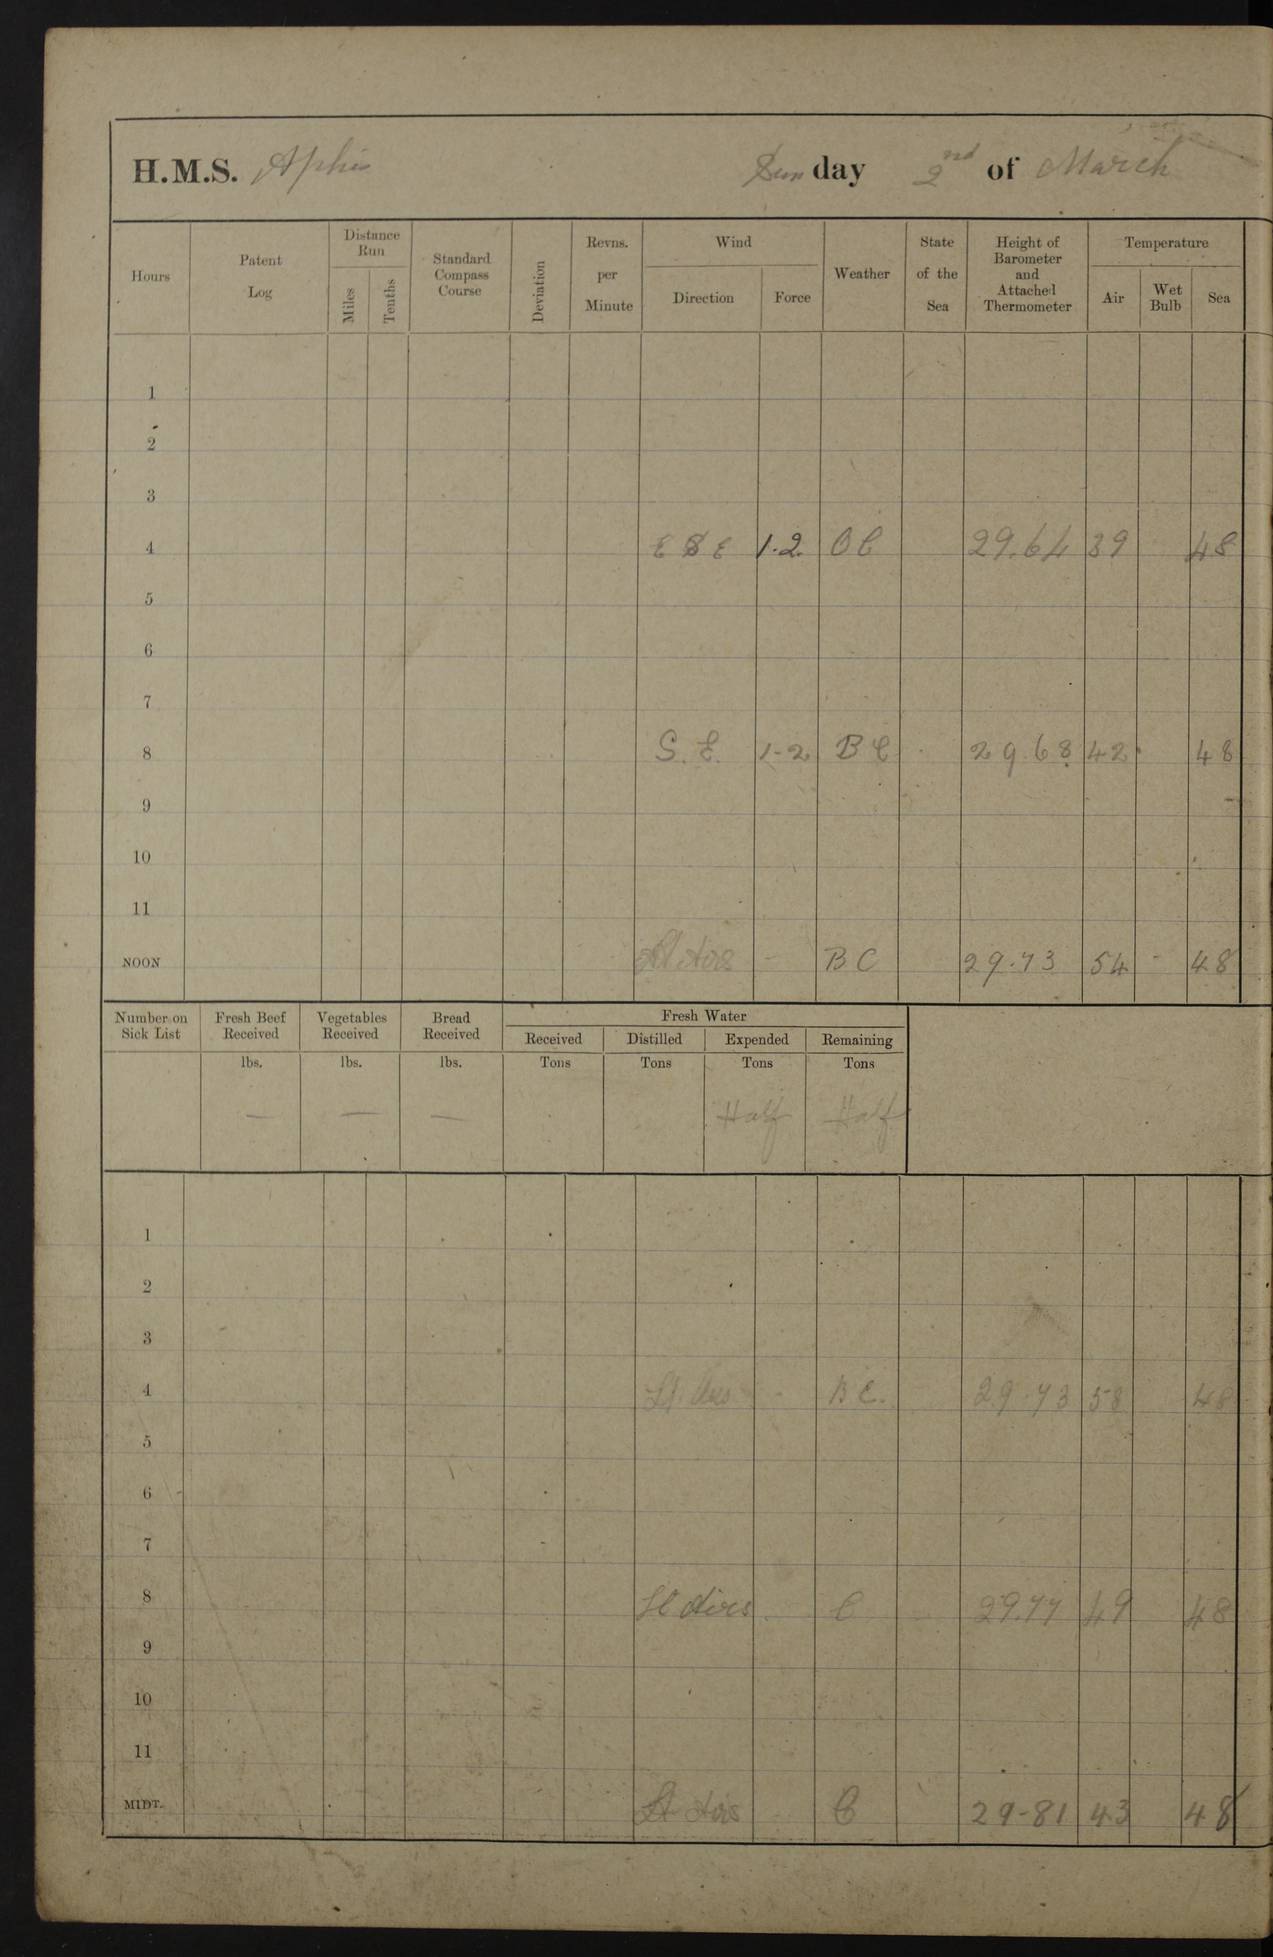 H.M.S. Aphis Sunday 2nd of March
Hours Patent Log Distance Run Miles Tenths Standard Compass Course Deviation Revns. per Minute Wind Direction Force Weather State of the Sea Height of Barometer and Attached Thermometer Temperature Air Wet Bulb Sea
1
2
3
4 ESE 1.2. OC 29.64 39 48
5
6
7
8 S.E. 1-2 BC 29.68 42 48
9
10
11
NOON Lt Airs - BC 29.73 54 - 48
Number on Sick List Fresh Beef Received Vegetables Received Bread Received Fresh Water
Received Distilled Expended Remaining
lbs. lbs. lbs. Tons Tons Tons Tons
— — — Half Half
1
2
3
4 Lt. Airs - BC. 29.73 58 48
5
6
7
8 Lt Airs C 29.77 49 48
9
10
11
MIDT. Lt Airs C 29-81 43 48